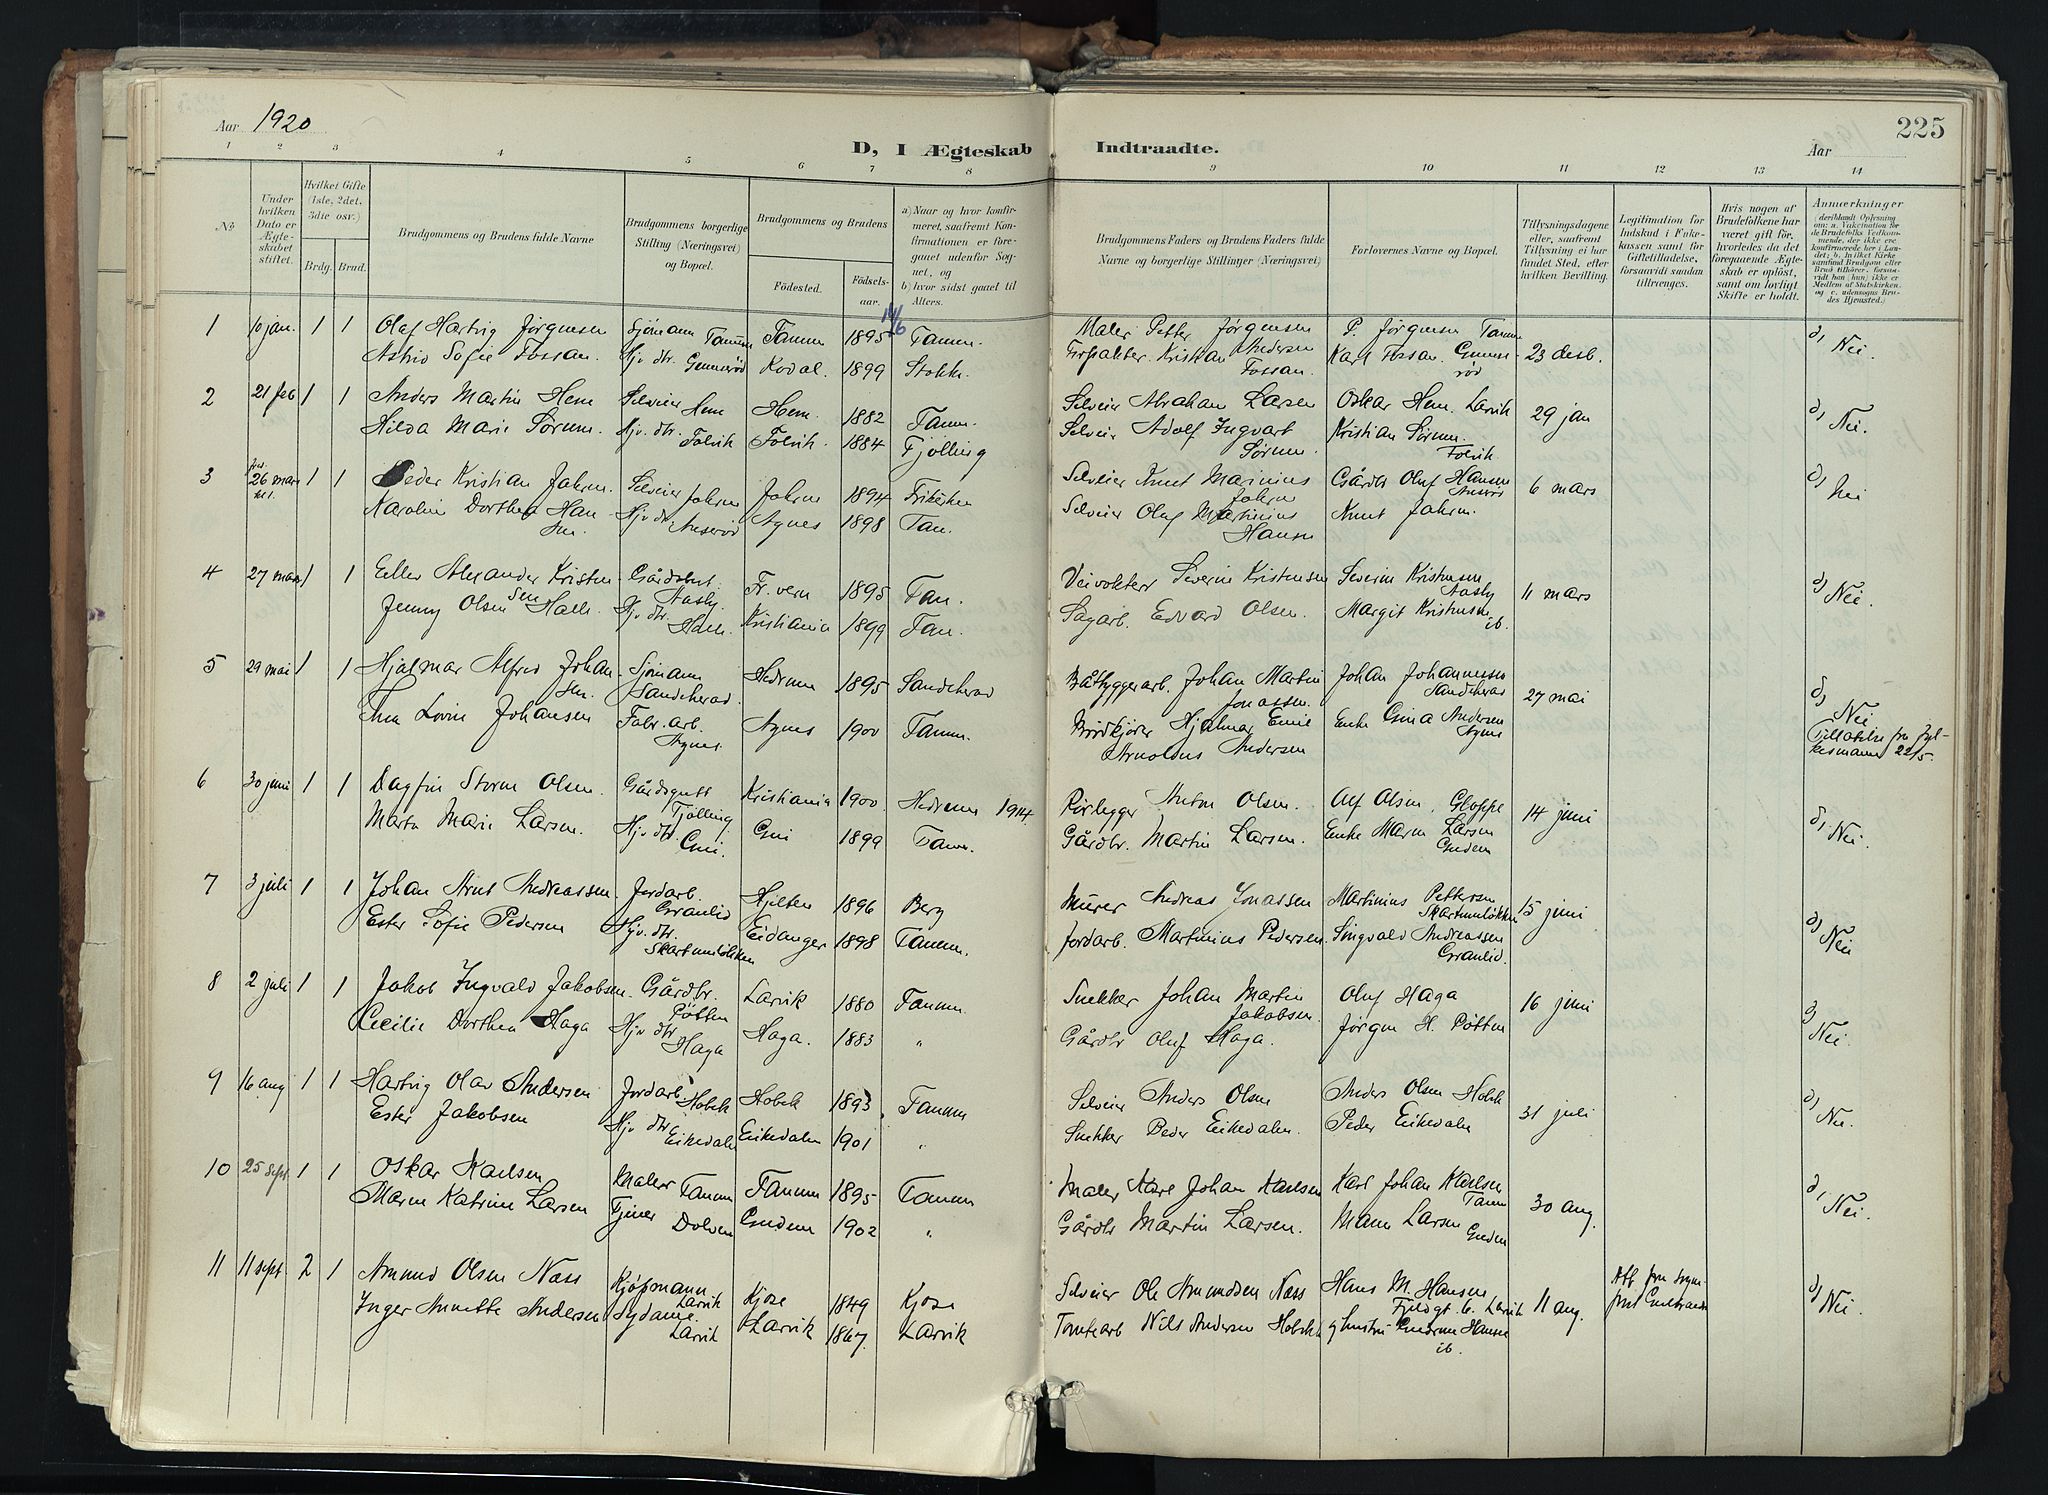 Aar 1920
D, I Ægteskab Indtraadte.
Aar
225
1 2 3 4 5 6 7 8 9 10 11 12 13 14
№
Under hvilken Dato er Ægteskabet stiftet.
Hvilket Gifte (1ste, 2det, 3die osv.)
Brdg. Brud.
Brudgommens og Brudens fulde Navne
Brudgommens borgerlige Stilling (Næringsvei) og Bopæl.
Brudgommens og Brudens
Fødested.
Fødselsaar.
a) Naar og hvor konfirmeret, saafremt Konfirmationen er foregaaet udenfor Sognet, og
b) hvor sidst gaaet til Alters.
Brudgommens Faders og Brudens Faders fulde Navne og borgerlige Stillinger (Næringsvei)
Forlovernes Navne og Bopæl.
Tillysningsdagene eller, saafremt Tillysning ei har fundet Sted, efter hvilken Bevilling.
Legitimation for Indskud i Enkekassen samt for Giftetilladelse, forsaavidt saadan tiltrænges.
Hvis nogen af Brudefolkene har været gift før, hvorledes da det foregaaende Ægteskab er opløst, samt om lovligt Skifte er holdt.
Anmærkninger
1 10 jan. 1 1 Olaf Hartvig Jørgensen Sjömann Tanum Tanum 1895 14/6 Tanum. Maler Petter Jørgensen P. Jørgensen Tanum 23 desb. Nei
Astrid Sofie Fossan. Hj. dtr. Gunnerød Kodal. 1899 Stokke. Kristian Andersen Fossan. Karl Fossan. Gunnerød
2 21 feb 1 1 Anders Martin Hem Selveier Hem Hem. 1882 Tanum. Selveier Abrahan Larsen Oskar Hem. Larvik 29 jan Nei.
Hilda Marie Sørum. Hjv. dtr. Folvik Folvik. 1884 Tjølling Selveier Adolf Ingvart Sørum Kristian Sørum. Folvik
3 26 mars 1 1 Peder Kristian Jahrn. Selveier Jahrn Jahrn 1894 Frikirken Selveier Knut Marinius Jahrn Gårdbr Oluf Hansen Anserød 6 mars Nei
Karolin Dorthea Hansen Hjv. dtr Anserød Agnes 1898 Tan. Selveier Oluf Martinius Hansen Knut Jahrn.
4 27 mars 1 1 Eiler Alexander Kristensen Gårdsbest. Aasby Fr.vern 1895 Tan. Veivokter Severin Kristensen Severin Kristensen Aasby 11 mars Nei.
Jenny Olsen Halle. Hjv. dtr. Halle. Kristiania 1899 Tan. Sagarb. Edvard Olsen. Margit Kristensen ib.
5 29 mai 1 1 Hjalmar Alfred Johansen. Sjömann Sandeherad Hedrum 1895 Sandeherad Båtbyggerarb. Johan Martin Jonassen. Johan Johannessen Sandeherad 27 mai Nei
Thea Lovise Johansen Fabr. arb. Agnes. Agnes 1900 Tanum. Hjalmar Emil Arnoldus Andersen Enke Gina Andersen Agnes Tillatelse fra fylkesmann 22/5.
6 30 juni 1 1 Dagfin Storm Olsen. Gårdsgutt Tjølling Kristiania 1900. Hedrum 1914. Rørlegger Anton Olsen. Alf Olsen, Gloppe 14 juni Nei.
Marta Marie Larsen. Hjv dtr Gui. Gui 1899 Tanum. Gårdbr. Martin Larsen. Enke Maren Larsen Gudem
7 3 juli 1 1 Johan Arnt Andreassen Jordarb. Granlid Hjelten 1896 Berg Murer Andreas Jonassen Martinius Pettersen Skartumløkken 15 juni Nei
Ester Sofie Pedersen Hjv. dtr. Skartumløkken Eidanger 1898 Tanum. Jordarb. Martinius Pedersen. Singvald Andreassen Granlid.
8 2 juli 1 1 Jakob Ingvald Jakobsen. Gårdbr. Pøtten Larvik 1880 Tanum. Snekker Johan Martin Jakobsen. Oluf Haga 16 juni Nei.
Cecilie Dorthea Haga Hjv dtr Haga Haga. 1883 " Gårdbr Oluf Haga. Jørgen H. Pøtten
9 16 aug 1 1 Hartvig Olav Andersen Jordarb Hobek Hobek 1893 Tanum Selveier Anders Olsen Anders Olsen Hobek 31 juli Nei.
Ester Jakobsen Hjv dtr Eikedalen Eikedalen 1901 " Snekker Peder Eikedalen. Peder Eikedalen
10 25 sept. 1 1 Oskar Karlsen Maler Tanum Tanum 1895 Tanum Maler Karl Johan Karlsen Karl Johan Karlsen Tanum 30 aug. Nei.
Maren Katrine Larsen Tjener Dolven Gudem 1902 " Gårdbr Martin Larsen. Maren Larsen Gudem
11 11 sept. 2 1 Amund Olsen Næss Kjøpmann Larvik Kjose 1849 Kjose Selveier Ole Amundsen Næss Hans M. Hansen Fjeldgt. 6. Larvik 11 aug. Att fra sogneprest Nei.
Inger Annette Andersen Sydame. Larvik Larvik 1867. Larvik Tomtearb Nils Andersen Hobek og hustru Gudrun Hansen ib.